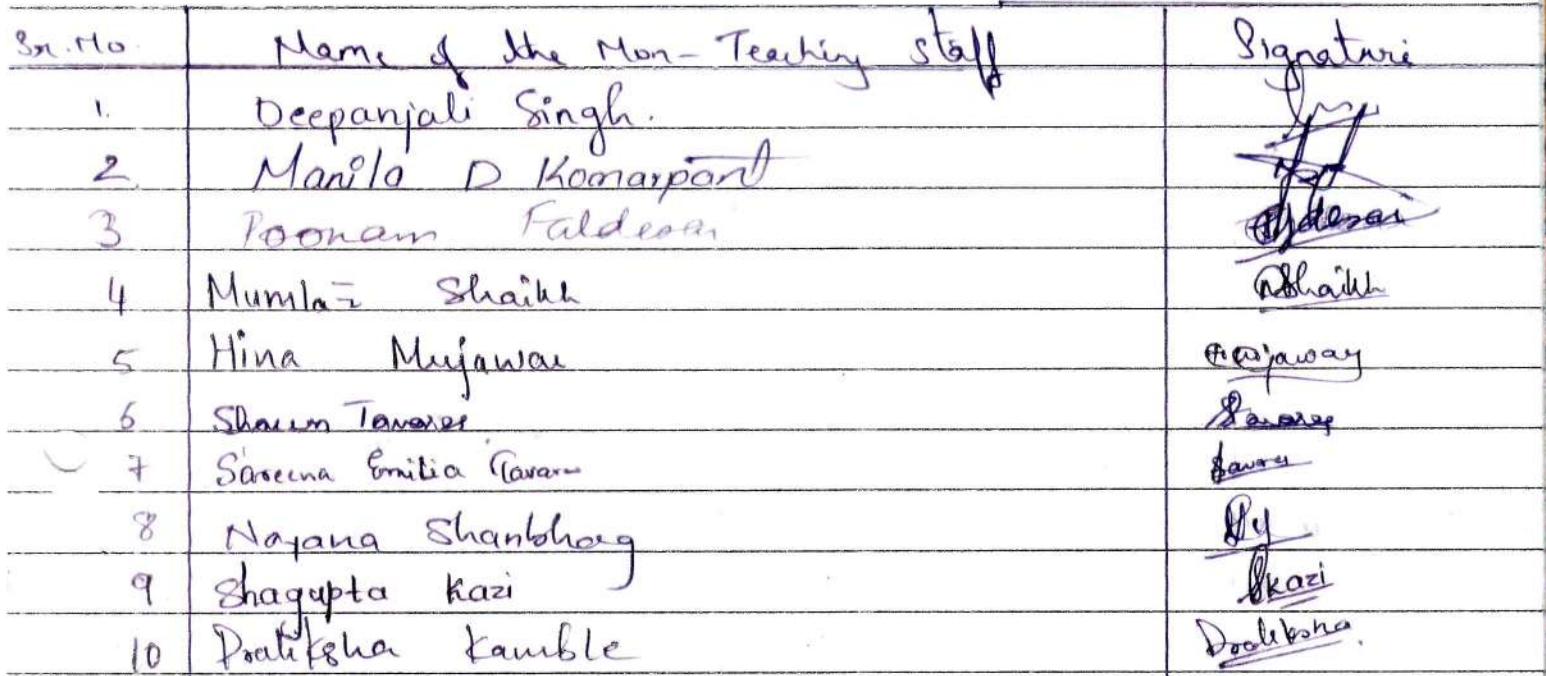 Sr. No. Name of the Non-Teaching staff Signature
1. Deepanjali Singh.
2 D Komarpant
3 Poonam Faldesai
4 Mumtaz Shaikh Shaikh
5 Hina Mujawar
6 Shaun Tavares Tavares
7 Emilia Tavares
8 Nayana Shanbhag
9 Shagupta Kazi Skazi
10 Pratiksha Kamble Pratiksha.